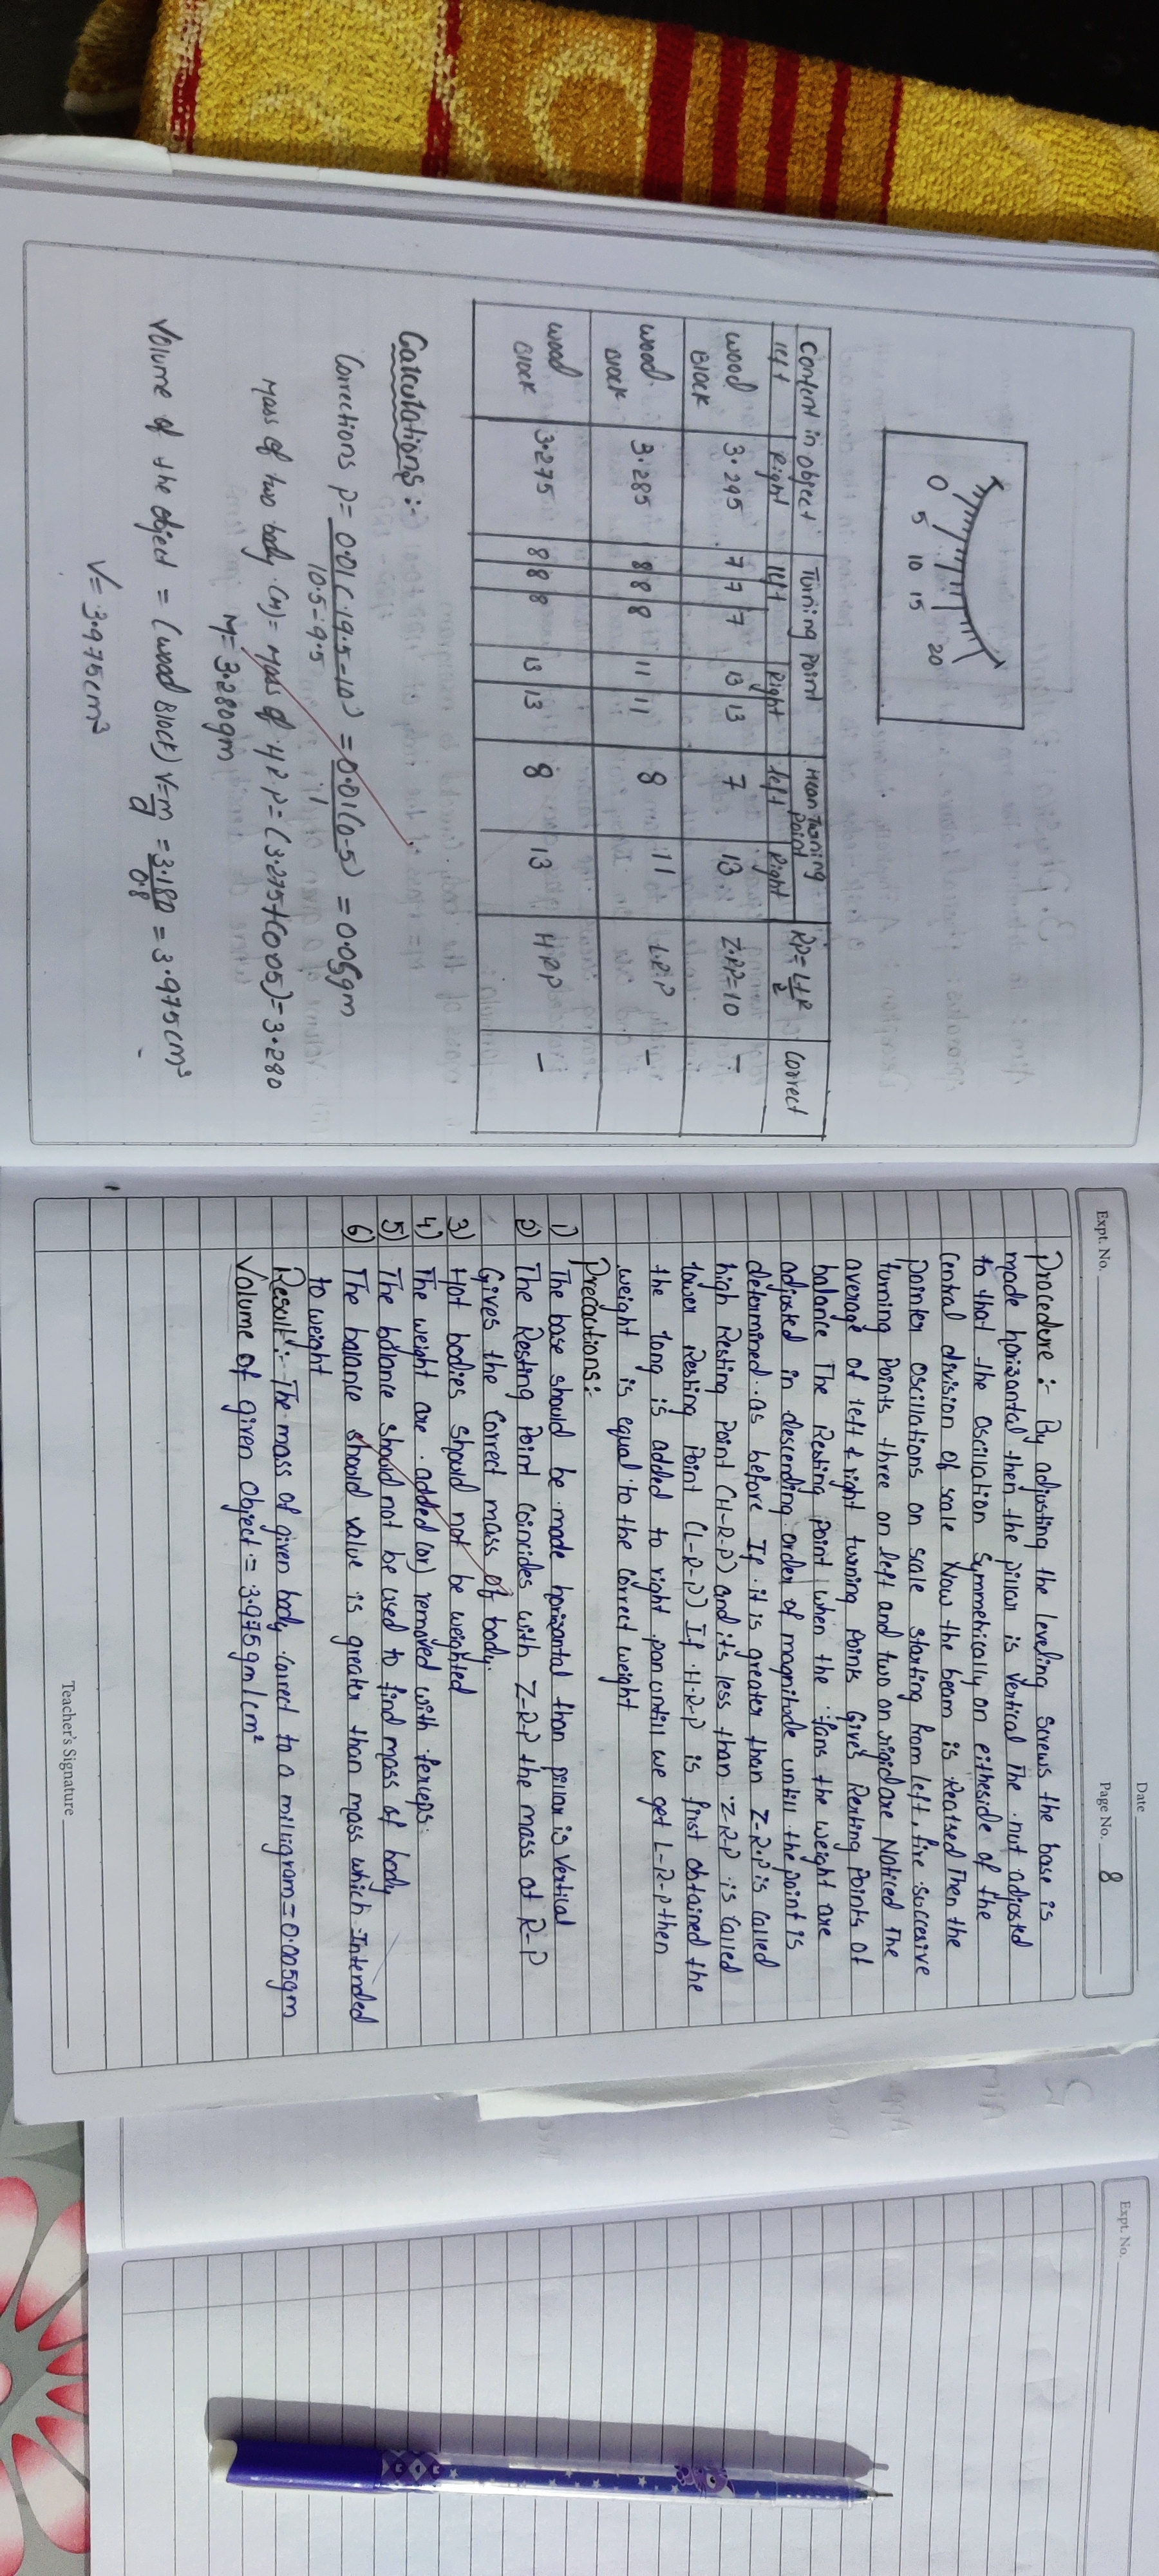 0 5 10 15 20
Content in object Turning Point Mean Turning Point RP=L+R/2 Correct
left Right left Right left Right
wood Block 3.295 7 7 7 13 13 7 13 Z.RP=10 -
wood Block 3.285 8 8 8 11 11 8 11 L.R.P -
wood Block 3.275 8 8 8 13 13 8 13 H.R.P -
Calculations :-
Corrections P= 0.01(19.5-10)/10.5-9.5 = 0.01(0.5)/1 = 0.05gm
Mass of two body (M)= Mass of HRP=(3.275+(0.05)=3.280
M=3.280gm
Volume of the object = (wood Block) V=m/d = 3.180/0.8 = 3.975cm³
V=3.975cm³
Expt. No.
Date
Page No. 8
Procedure :- By adjusting the leveling screws the base is
made horizantal then the pillar is vertical The nut adjasted
to that the oscillation symmetrically on eitheside of the
Central division of scale Now the beam is Reatsed Then the
pointer oscillations on scale starting from left, five succesive
turning points three on left and two on rigid are Noticed The
average of left & right turning points Gives Resting points of
balance The Resting point when the fans the weight are
adjusted in descending order of magnitude untill the point is
determined as before If it is greater than Z-R.P is called
high Resting point (H-R-P) and its less than Z-R-P is called
lower Resting point (L-R-P) If H.R-P is first obtained the
the long is added to right pan untill we get L-R-P then
weight is equal to the correct weight
Precautions :-
1) The base should be made horizontal than pillar is vertical
2) The Resting point coincides with Z-R-P the mass at R-P
Gives the Correct mass of body.
3) Hot bodies should not be weighted
4) The weight are added (or) removed with ferceps.
5) The balance should not be used to find mass of body
6) The balance should value is greater than mass which Intended
to weight
Result :- The mass of given body correct to a milligram=0.005gm
Volume of given object = 3.975gm/cm²
Teacher's Signature
Expt. No.